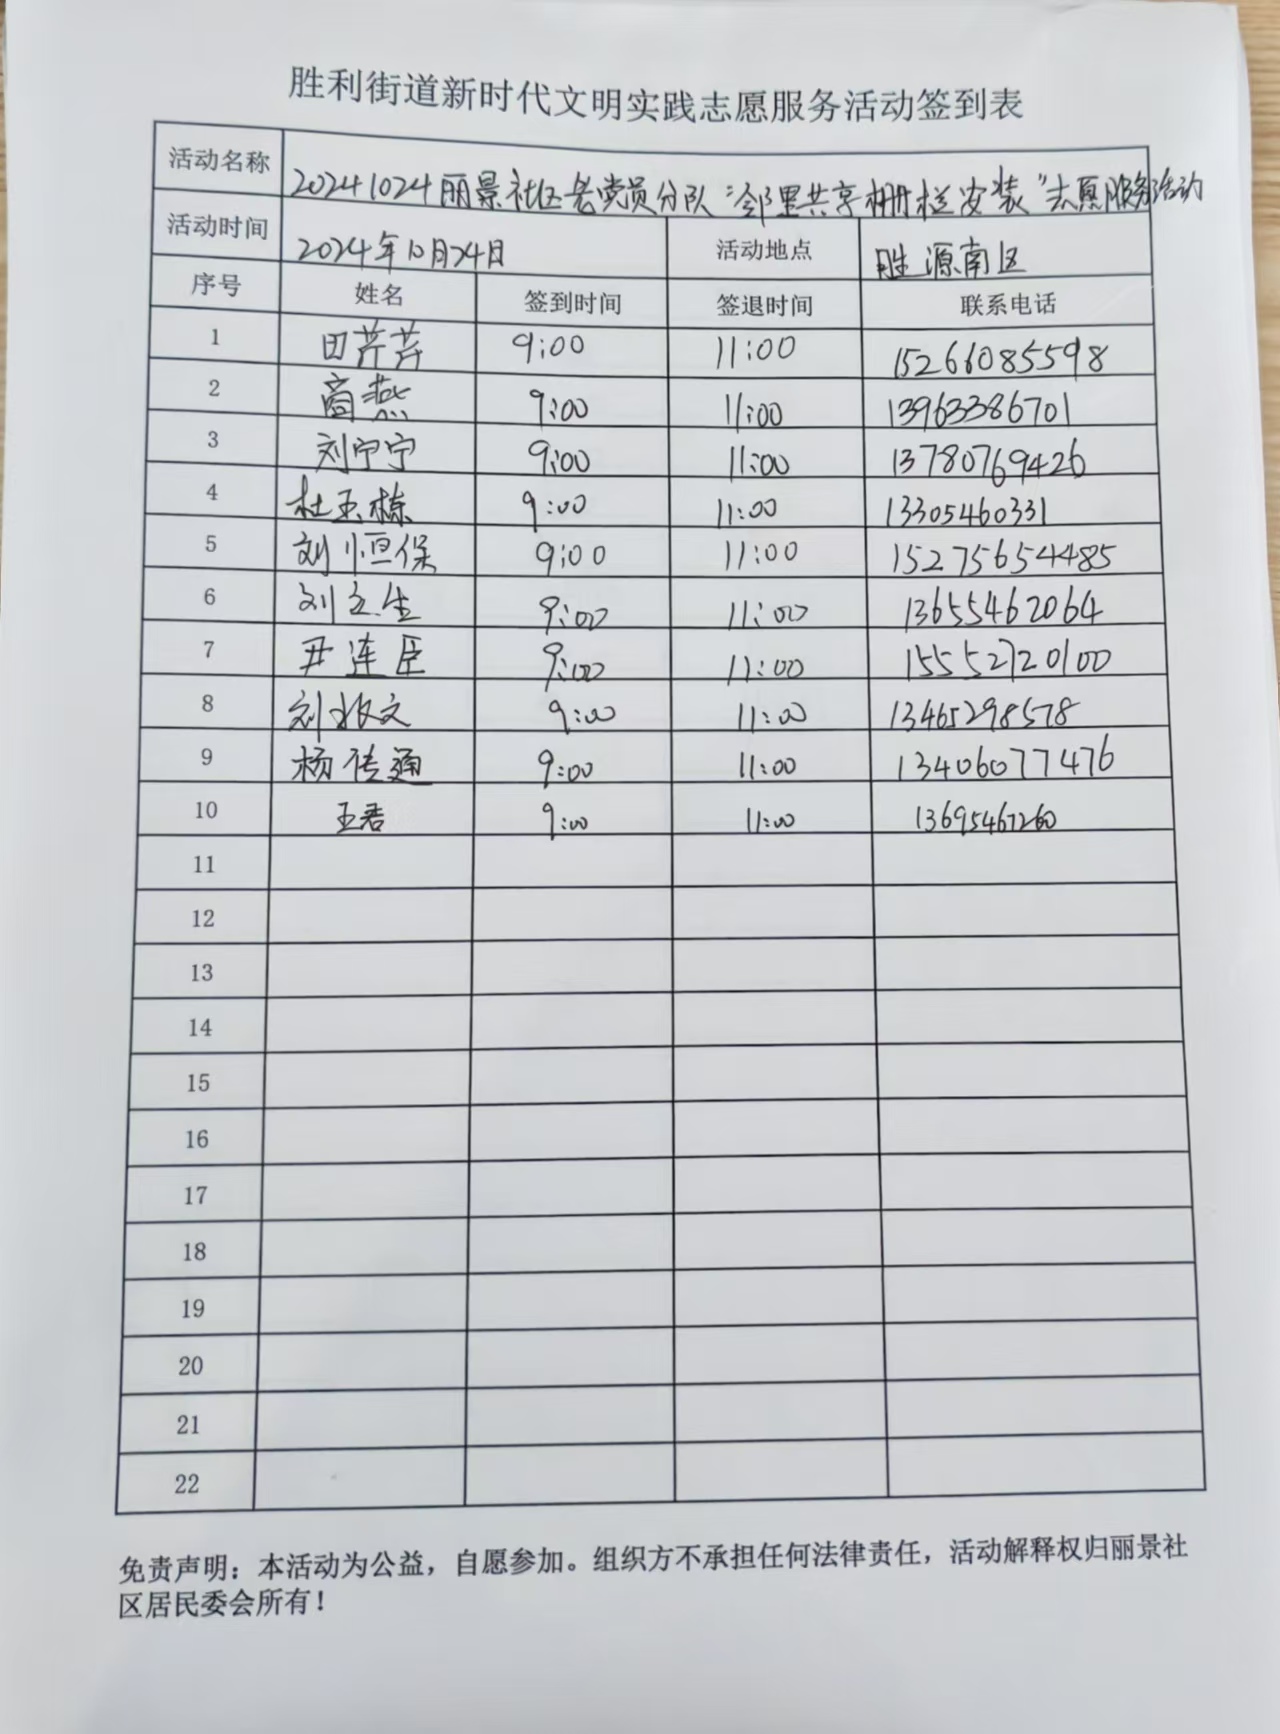 胜利街道新时代文明实践志愿服务活动签到表
活动名称 20241024丽景社区老党员分队“邻里共享栅栏安装”志愿服务活动
活动时间 2024年10月24日 活动地点 胜源南区
序号 姓名 签到时间 签退时间 联系电话
1 田芹芹 9:00 11:00 15266085598
2 商燕 9:00 11:00 13963386701
3 刘宁宁 9:00 11:00 13780769426
4 杜玉栋 9:00 11:00 13305460331
5 刘恒保 9:00 11:00 15275654485
6 刘立生 9:00 11:00 13655462064
7 尹连臣 9:00 11:00 15552120100
8 刘 文 9:00 11:00 13465298578
9 杨传通 9:00 11:00 13406077476
10 王君 9:00 11:00 13695467260
11
12
13
14
15
16
17
18
19
20
21
22
免责声明：本活动为公益，自愿参加。组织方不承担任何法律责任，活动解释权归丽景社
区居民委会所有！